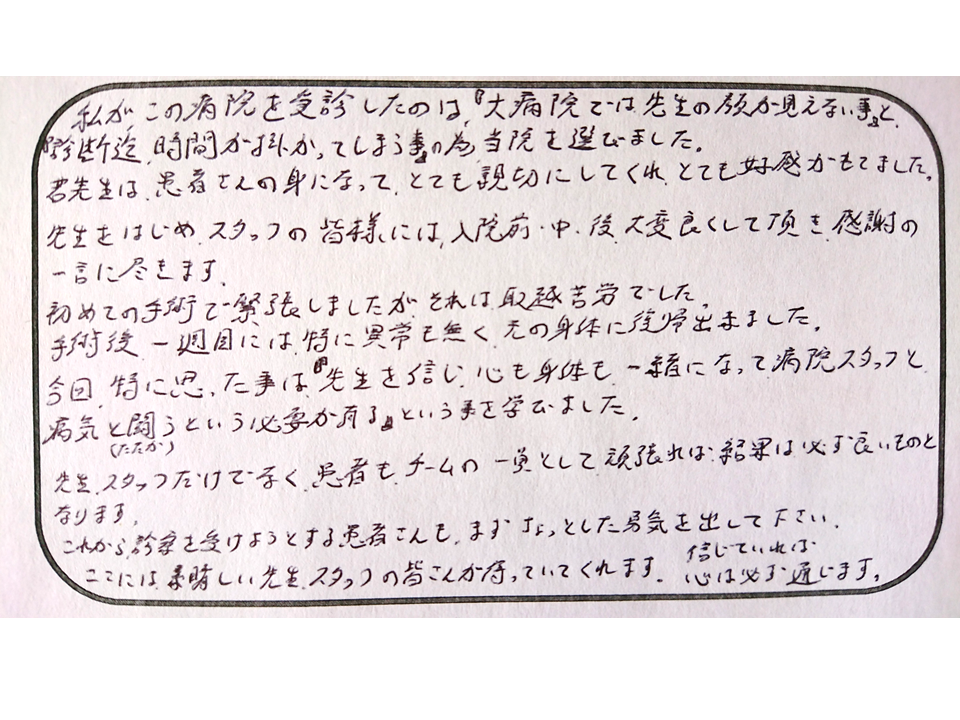 私が この病院を受診したのは、『大病院では 先生の顔が見えない事』と、
診断迄、時間が掛かってしまう事』の為 当院を選びました。
先生は、患者さんの身になって、とても親切にしてくれ、とても好感がもてました。
先生をはじめ、スタッフの皆様には、入院前・中・後、大変良くして頂き、感謝の
一言に尽きます。
初めての手術で緊張しましたが それは取越苦労でした。
手術後、一週目には、特に異常も無く、元の身体に復帰出来ました。
今回、特に思った事は『先生を信じ、心も身体も、一緒になって病院スタッフと
病気と闘うという必要が有る』という事を学びました。
(たたかう)
先生、スタッフだけでなく、患者も、チームの一員として、頑張れば、結果は必ず良いものと
なります。
これから、診察を受けようとする患者さんも、まず ちょっとした勇気を出して下さい。
ここには、素晴しい先生、スタッフの皆さんが待っていてくれます。
信じていれば
心は必ず通じます。